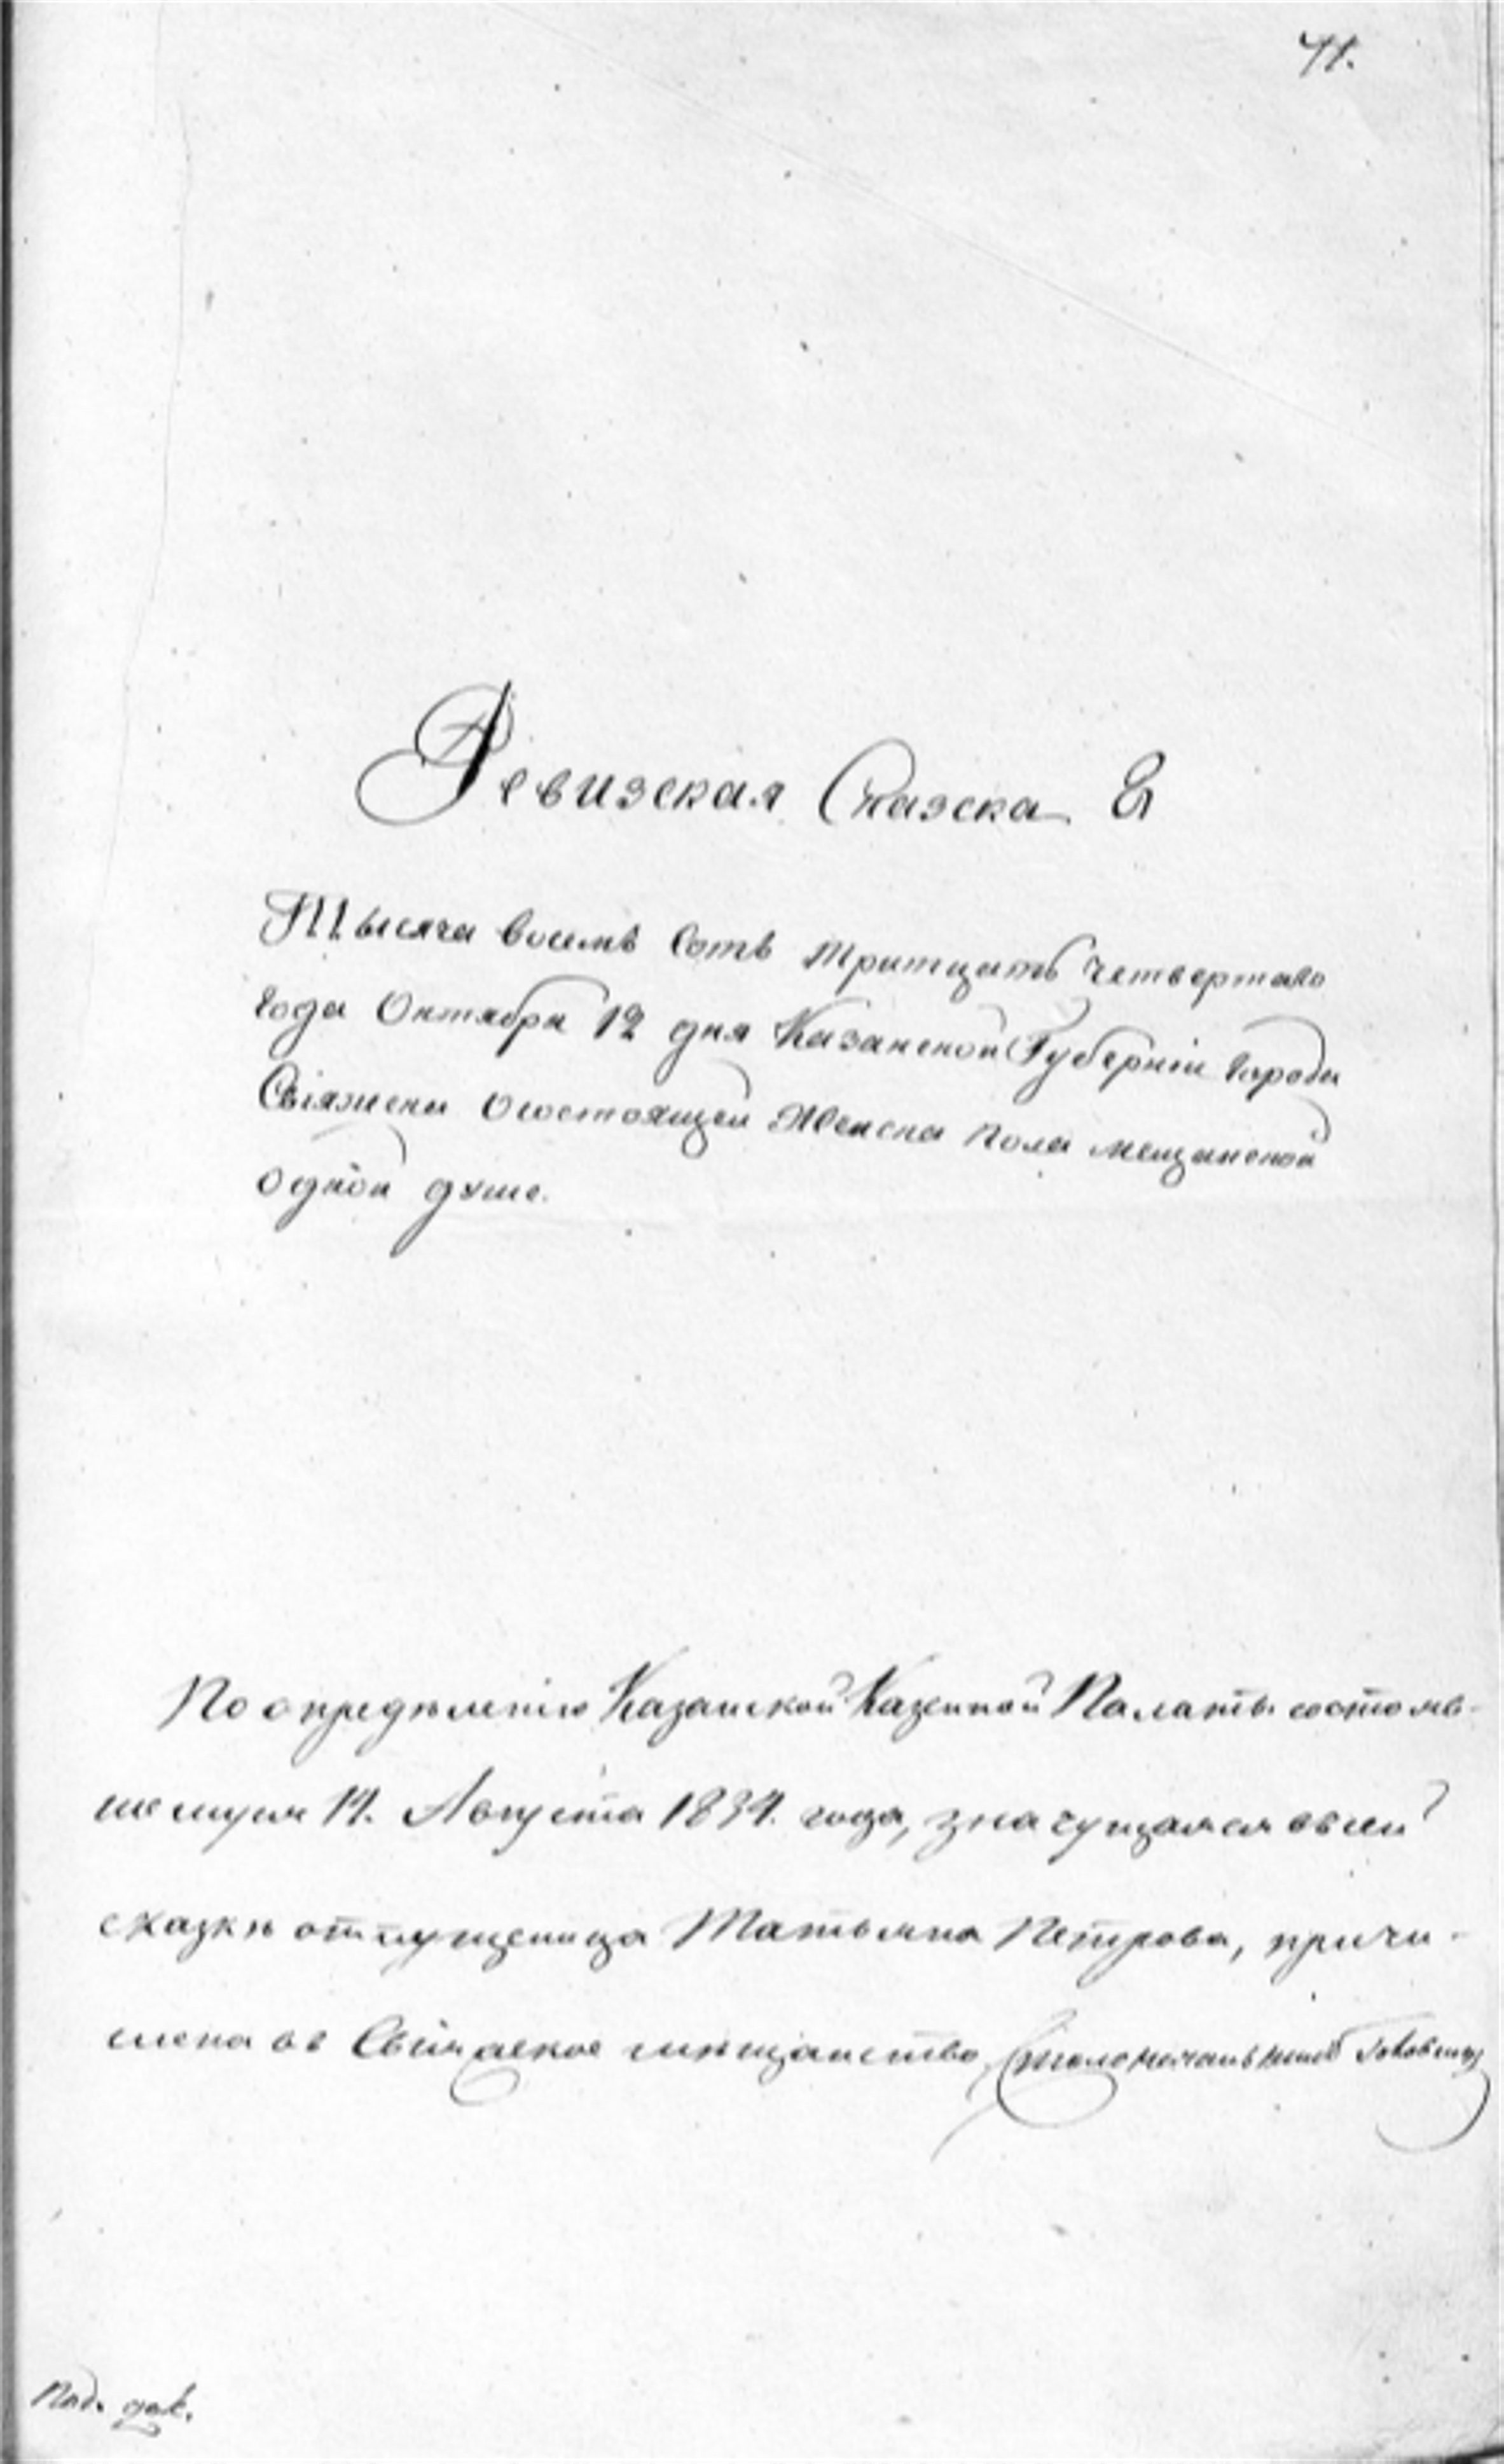 41.
Ревизская Сказска
Тысяча восемь Сотъ тритцать четвертаго
Года Октября 12 дня Казанской Губерніи Города
Свіяжска О состоящей Женска пола мещанской
одной душе.
По определенію Казанской Казенной Палаты состояв-
шемуся 14. Августа 1834. года, значущаяся въ сей
сказкѣ отпущеница Татьяна Петрова, причи-
слена въ Свіяжское мѣщанство, Столоначальникъ